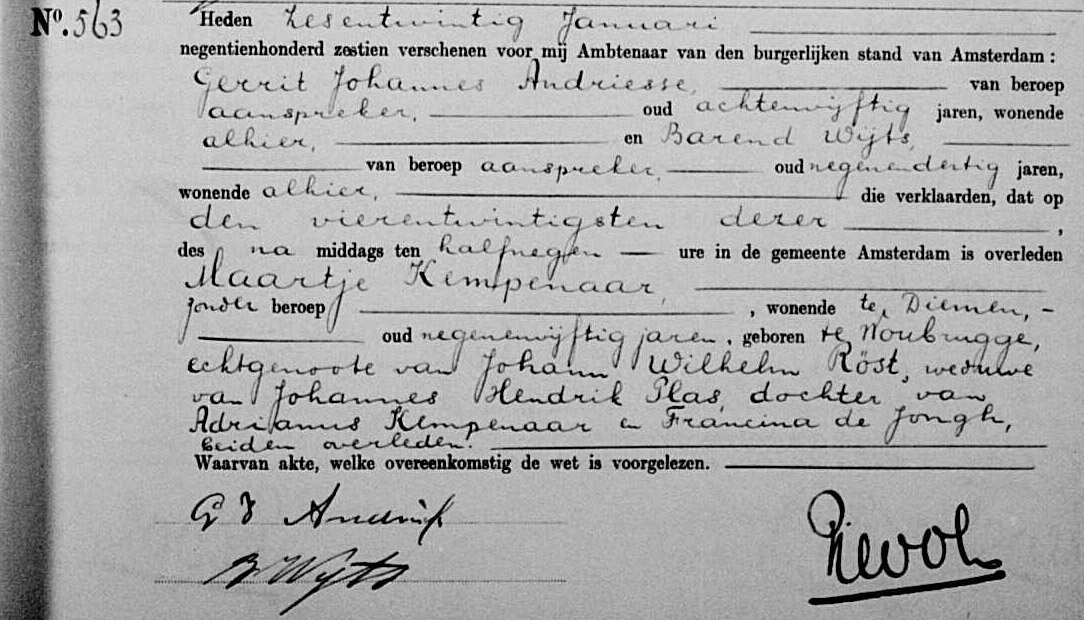 Nº. 563 Heden Zesentwintig Januari
negentienhonderd zestien verschenen voor mij Ambtenaar van den burgerlijken stand van Amsterdam :
Gerrit Johannes Andriesse, van beroep
aanspreker, oud achtenvijftig jaren, wonende
alhier, en Barend Wijts,
van beroep aanspreker, oud negenendertig jaren,
wonende alhier, die verklaarden, dat op
den vierentwintigsten dezer ,
des na middags ten halfnegen ure in de gemeente Amsterdam is overleden
Maartje Kempenaar,
zonder beroep , wonende te Diemen,
oud negenenvijftig jaren, geboren te Woubrugge,
echtgenoote van Johann Wilhelm Röst, weduwe
van Johannes Hendrik Plas, dochter van
Adrianus Kempenaar en Francina de Jongh,
beiden overleden.
Waarvan akte, welke overeenkomstig de wet is voorgelezen.
G J Andriesse
B Wijts